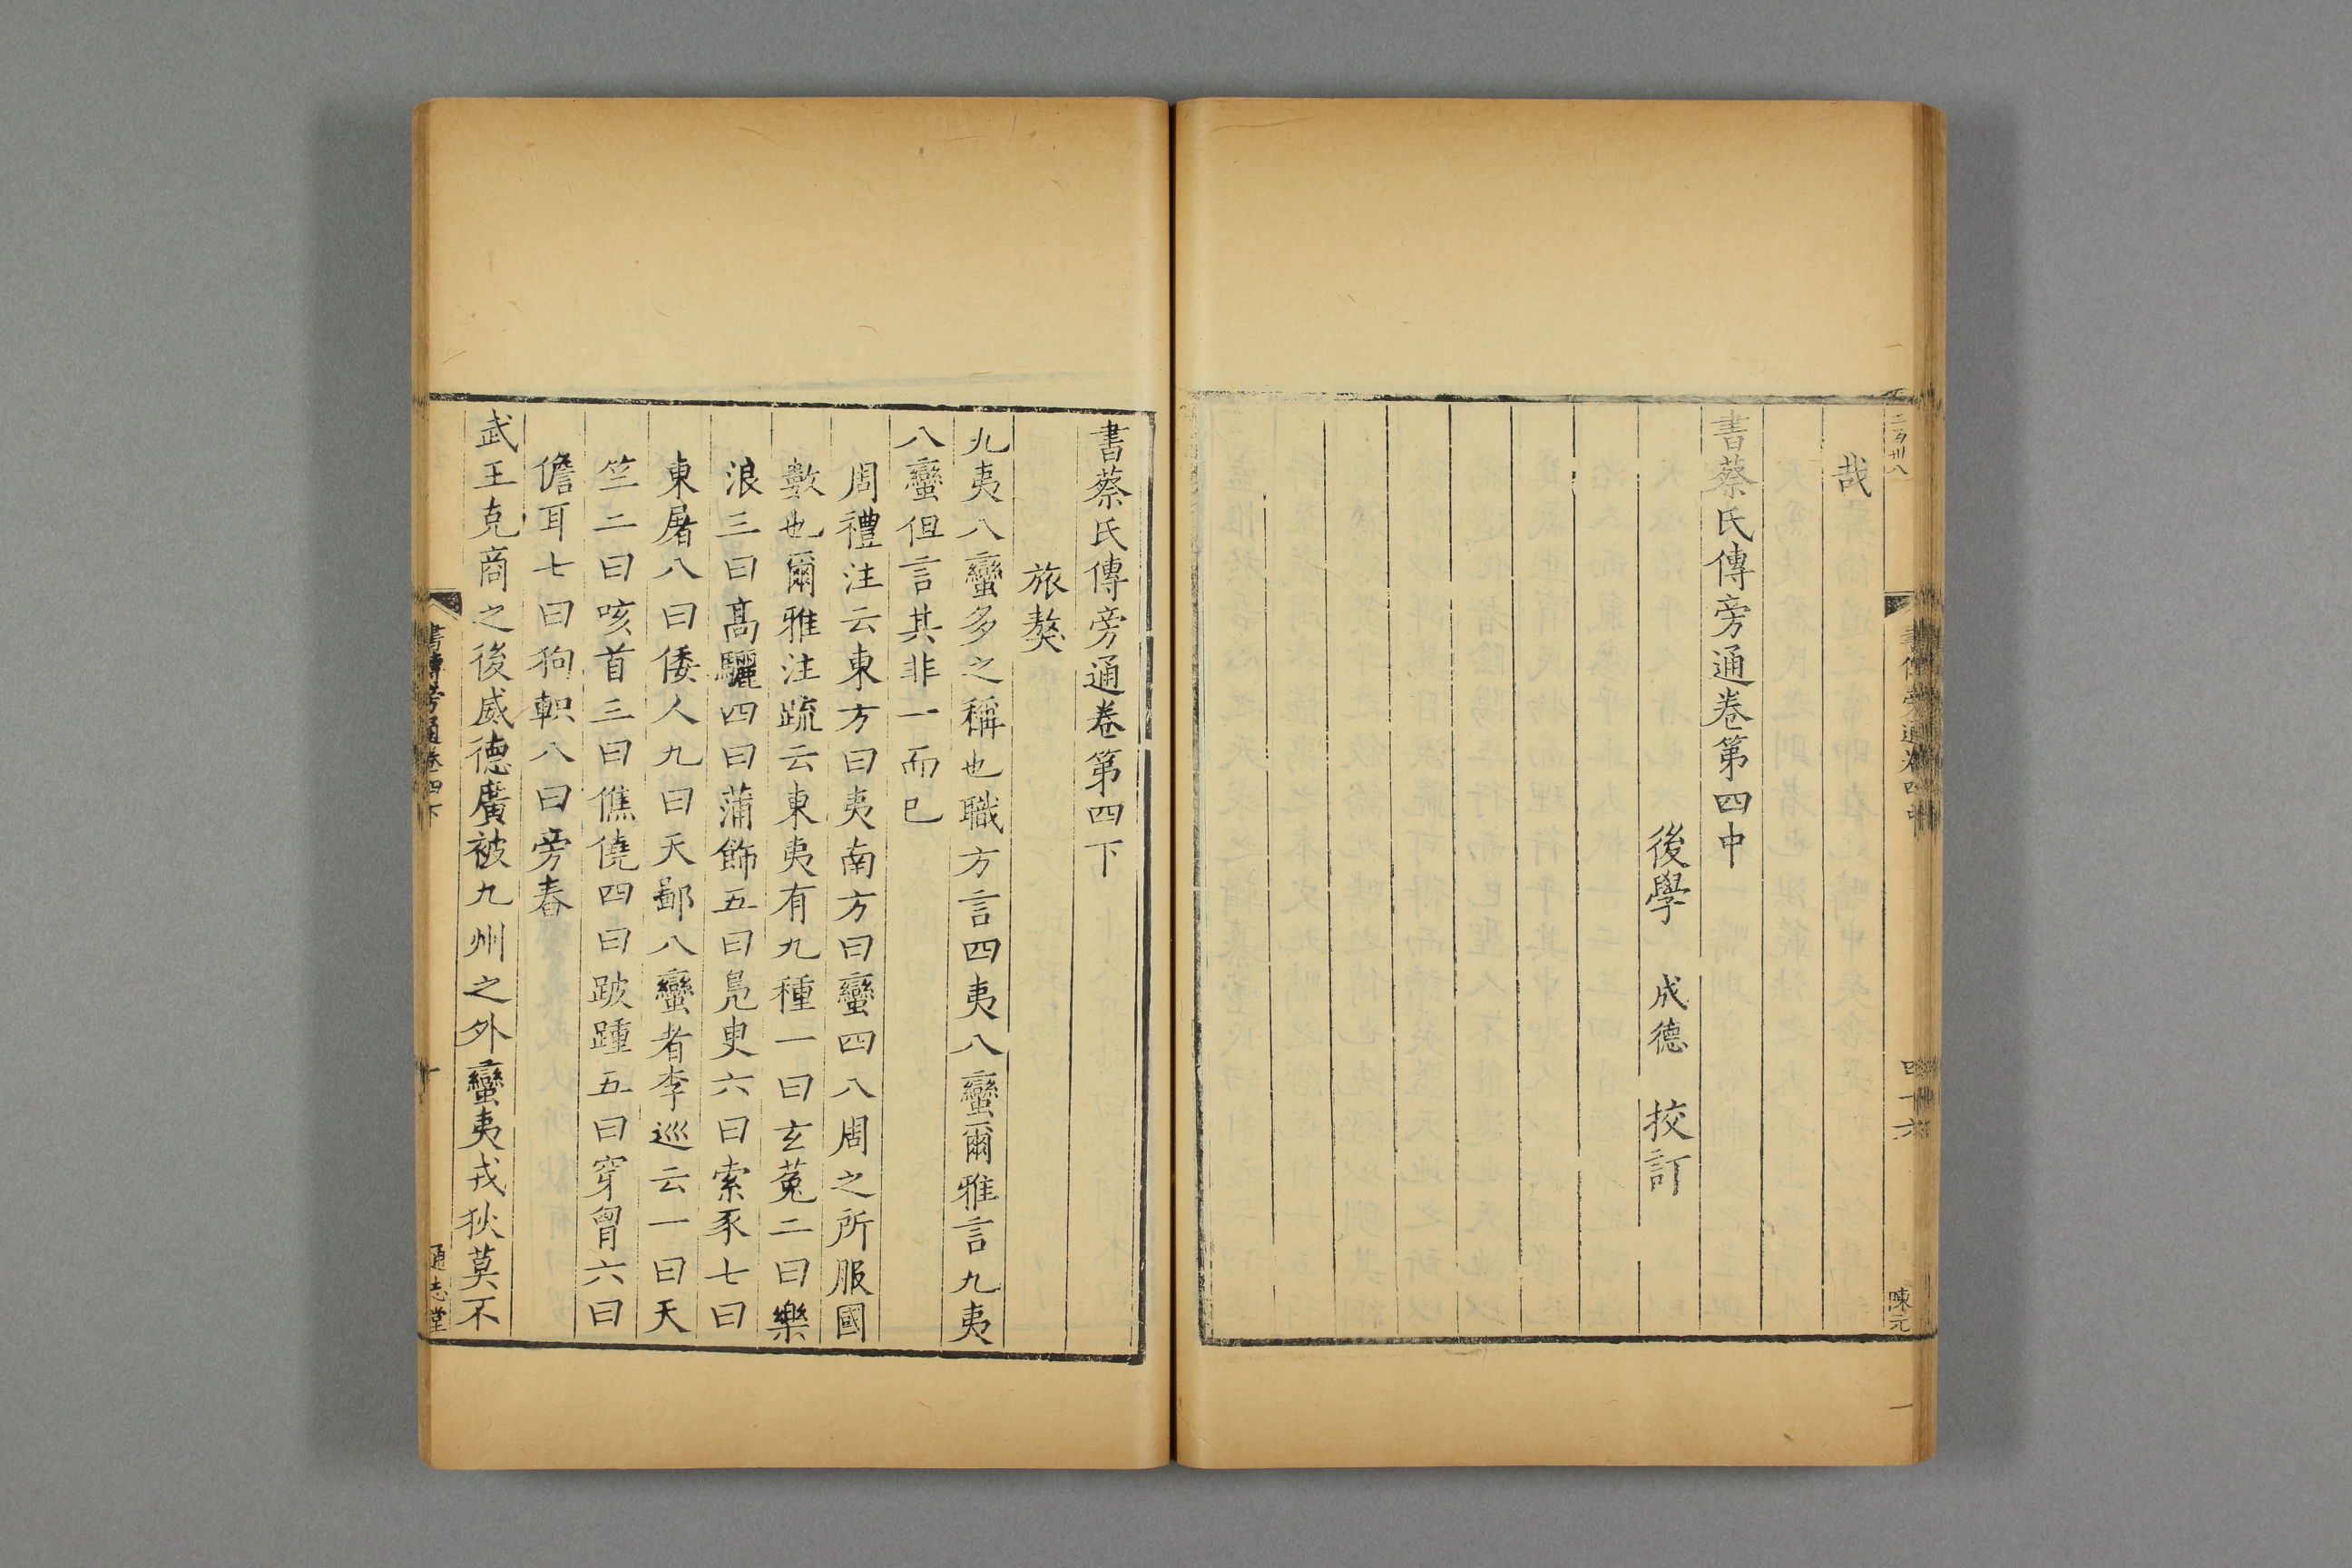 二百卅八
哉
書蔡氏傳旁通卷第四中
後學 成德 挍訂
書傳旁通卷四中
四十六
陳元
書蔡氏傳旁通卷第四下
旅獒
九夷八蠻多之稱也職方言四夷八蠻爾雅言九夷
八蠻但言其非一而已
周禮注云東方曰夷南方曰蠻四八周之所服國
數也爾雅注疏云東夷有九種一曰玄菟二曰樂
浪三曰高驪四曰蒲飾五曰鳧叓六曰索豕七曰
東屠八曰倭人九曰天鄙八蠻者李巡云一曰天
竺二曰咳首三曰僬僥四曰跛踵五曰穿胷六曰
儋耳七曰狗軹八曰旁舂
武王克商之後威德廣被九州之外蠻夷戎狄莫不
書傳旁通卷四下
一
通志堂